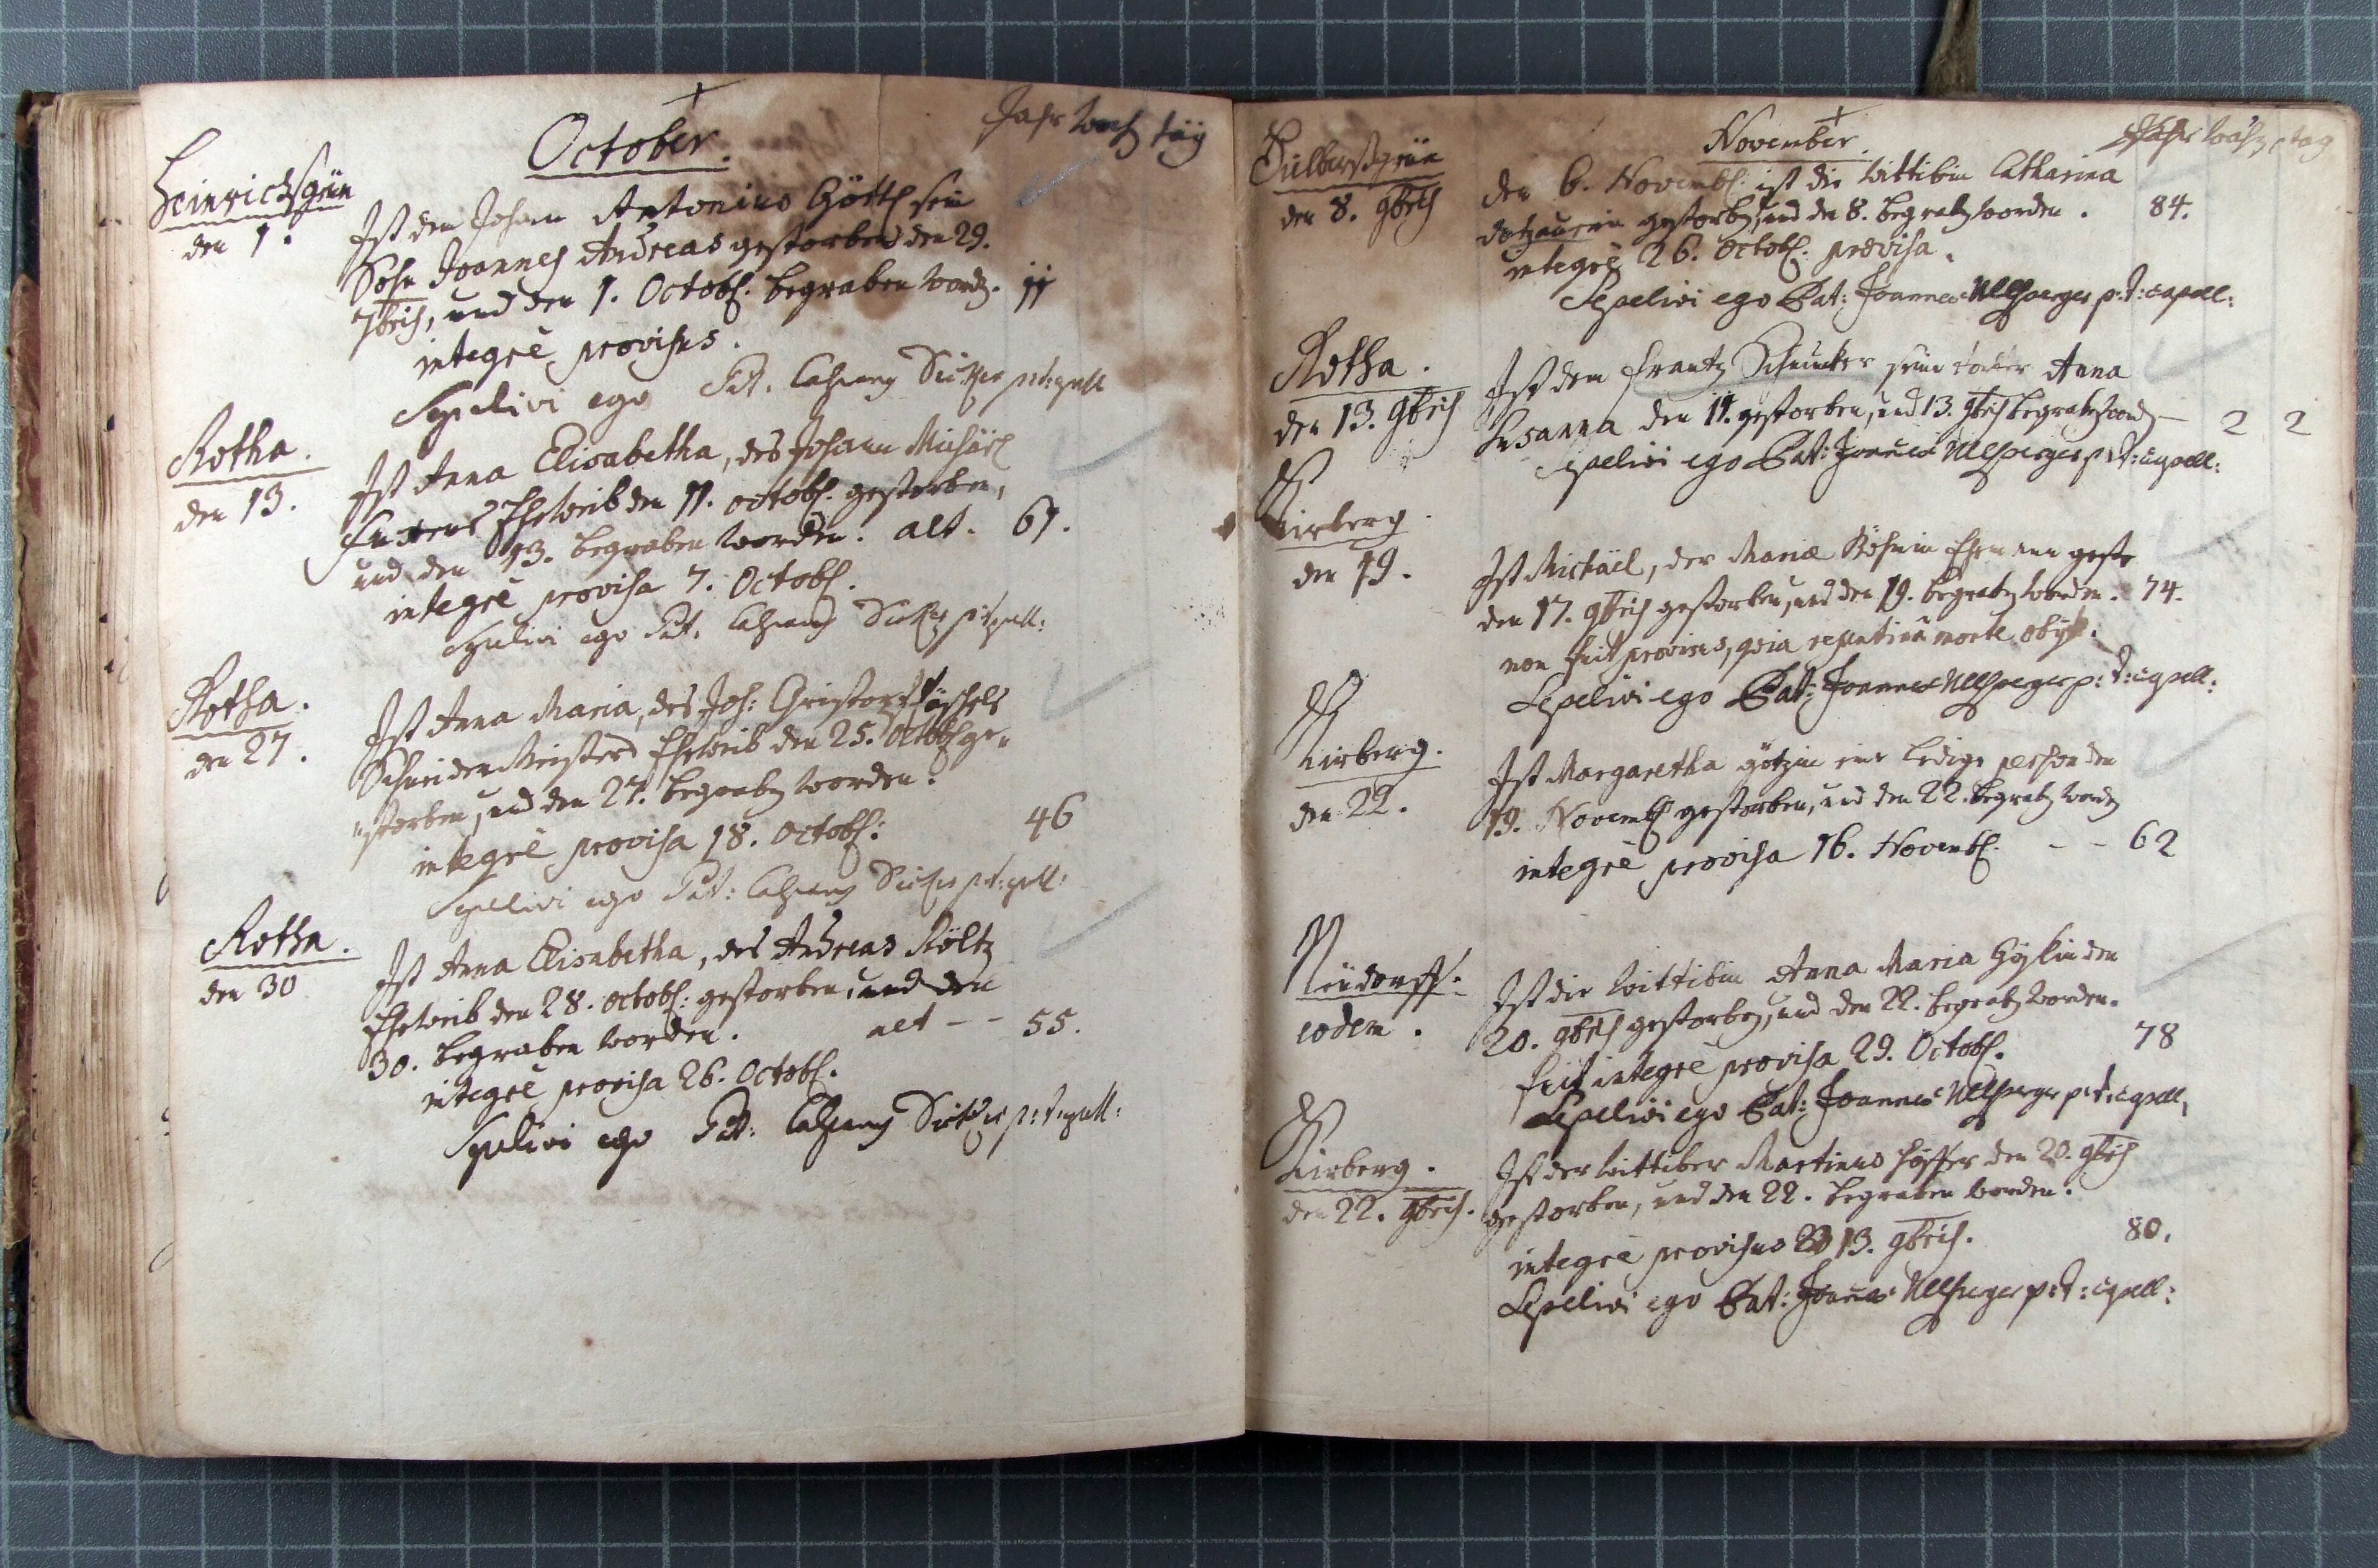 October.
Jahr Woch täg
Heinrichsgrün
den 1.
Ist dem Johann Antonius Götti sein
Sohn Joannes Andreas gestorben den 29.
7bris, und den 1. Octobr. begraben word. 11
integrè provisus.
Sepelivi ego Pat. p:t: capell
Rotha.
den 13.
Ist Anna Elisabetha, des Johann Michäel
Eheweib den 11. octobr. gestorben,
und den 13. begraben worden. alt. 61.
integrè provisa 7. Octobr.
Sepelivi ego Pat. p:t: capell:
Rotha.
den 27.
Ist Anna Maria, des Joh: Christoph
Schneider Meisters Eheweib den 25. Octobr ge„
„storben, und den 27. begraben worden.
integrè provisa 18. octobr: 46
Sepelivi ego Pat: p:t: capell:
Rotha.
den 30
Ist Anna Elisabetha, des Andreas Költz
Eheweib den 28. octobr: gestorben, und den
30. begraben worden. alt - - 55.
integrè provisa 26. Octobr.
Sepelivi ego Pat: p:t: capell:
November.
Jahr Woch, tag
den 8. 9bris
den 6. Novembr: ist die Wittibin Catharina
gestorben, und den 8. begraben worden. 84.
integrè 26. Octobr. provisa.
Sepelivi ego Pat: Joannes Ullsperger p:t: capell:
Rotha.
den 13. 9bris
Ist dem Frantz Schuncker seine tochter Anna
Susanna den 11. gestorben, und 13. 9bris begraben word — 2 2
Sepelivi ego Pat: Joannes Ullsperger p:t: capell:
Kirberg.
den 19.
Ist Michäel, der Mariæ Böhmin Ehemann
den 17. 9bris gestorben, und den 19. begraben worden. 74.
non fuit provisus, quia repentinâ morte obijt.
Sepelivi ego Pat: Joannes Ullsperger p:t: capell:
Kirberg.
den 22.
Ist Margaretha götzin eine ledige person den
19. Novembr gestorben, und den 22. begraben worden
integrè provisa 16. Novembr. - - 62
Neüdorff.
eodem.
Ist die Wittibin Anna Maria den
20. 9bris gestorben, und den 22. begraben worden.
fuit integrè provisa 29. Octobr. 78
Sepelivi ego Pat: Joannes Ullsperger p:t: capell,
Kirberg.
den 22. 9bris.
Ist der Wittiber Martinus den 20. 9bris
gestorben, und den 22. begraben worden.
integrè provisus 13. 9bris. 80.
Sepelivi ego Pat: Joannes Ullsperger p:t: capell: